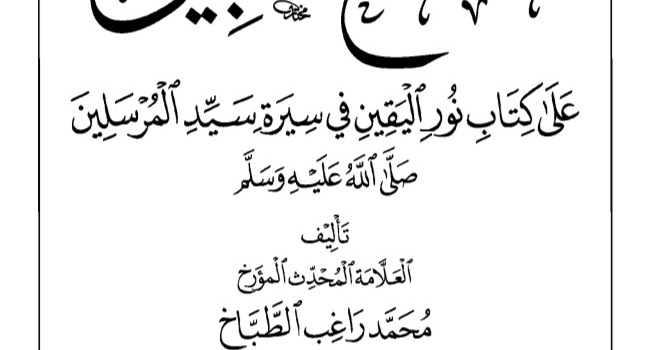 عَلَىٰ كِتَابِ نُورِ ٱلْيَقِينِ فِي سِيرَةِ سَيِّدِ ٱلْمُرْسَلِينَ
صَلَّىٰ ٱللَّهُ عَلَيْهِ وَسَلَّم
تَأْلِيْف
ٱلْعَلَّامَة ٱلْمُحْدِّث ٱلْمؤَرخ
مُحَمَّد رَاغِب ٱلطَّبَّاخ